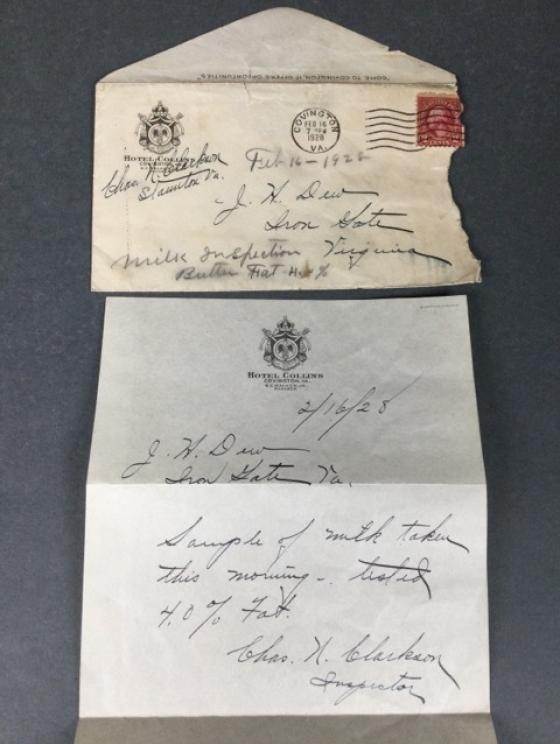 "COME TO COVINGTON, IT OFFERS OPPORTUNITIES"
HOTEL COLLINS
COVINGTON, VA.
Chas. N. Clarkson
Staunton Va.
COVINGTON
FEB 16
7 PM
1928
VA.
CENTS
Feb 16 - 1928
J. H. Dew
Iron Gate
Virginia
Milk Inspection
Butter Fat 4. - %
HOTEL COLLINS
COVINGTON, VA.
2/16/28
J. H. Dew
Iron Gate Va.
Sample of milk taken
this morning - tested
4.0% Fat.
Chas. N. Clarkson
Inspector